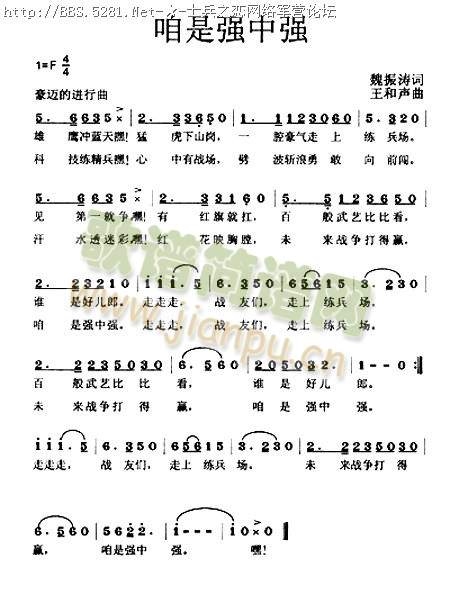 http://BBS.5281.Net-☆-士兵之恋网络军营论坛
咱是强中强
1=F 4/4
魏振涛词
豪迈的进行曲
王和声曲
5. 6635 × | 2. 33650 | 1 5123060 | 5. 320 |
雄 鹰冲蓝天嘿! 猛 虎下山岗, 一 腔豪气走上 练兵场。
科 技练精兵嘿! 心 中有战场, 劈 波斩浪勇敢 向前闯。
5. 6635 × | 2. 33160 | 5. 5123650 |
见 第一就争嘿! 有 红旗就扛, 百 般武艺比比看,
汗 水透迷彩嘿! 红 花映胸膛, 未 来战争打得赢,
2. 23210 | iii. 5 | 6. 350 | 65615 | 3. 230 |
谁 是好儿郎。 走走走, 战 友们, 走上 练兵 场。
咱 是强中强。 走走走, 战 友们, 走上 练兵 场。
2. 2235030 | 6. 560 | 205032. | 1--0 :‖
百 般武艺比比 看, 谁是好儿 郎。
未 来战争打得 赢, 咱是强中 强。
iii. 5 | 6. 350 | 65615 | 3. 230 | 2. 2235030 |
走走走, 战 友们, 走上 练兵 场。 未 来战争打 得
6. 560 | 5622. | i--- | i0×0 ‖
赢, 咱是强中 强。 嘿!
歌谱简谱网
www.jianpu.cn